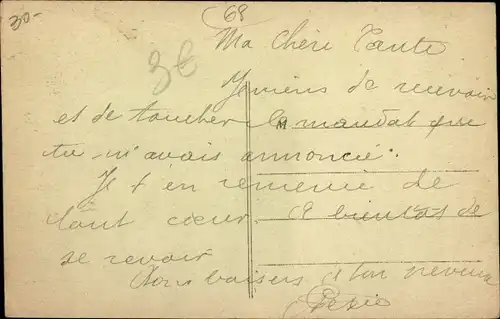 30-
68
3€
Ma Chère Tante
Je viens de recevoir
et de toucher le mandat que
tu m'avais annoncé.
Je t'en remercie de
tout cœur. A bientôt de
se revoir
Doux baisers d ton neveu